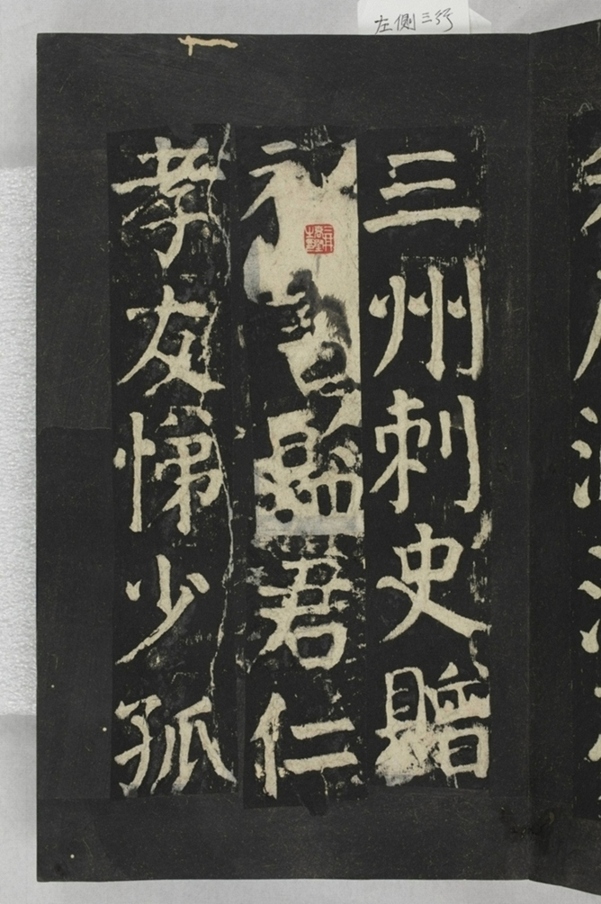 左側三行
三州刺史贈
書監君仁
孝友悌少孤